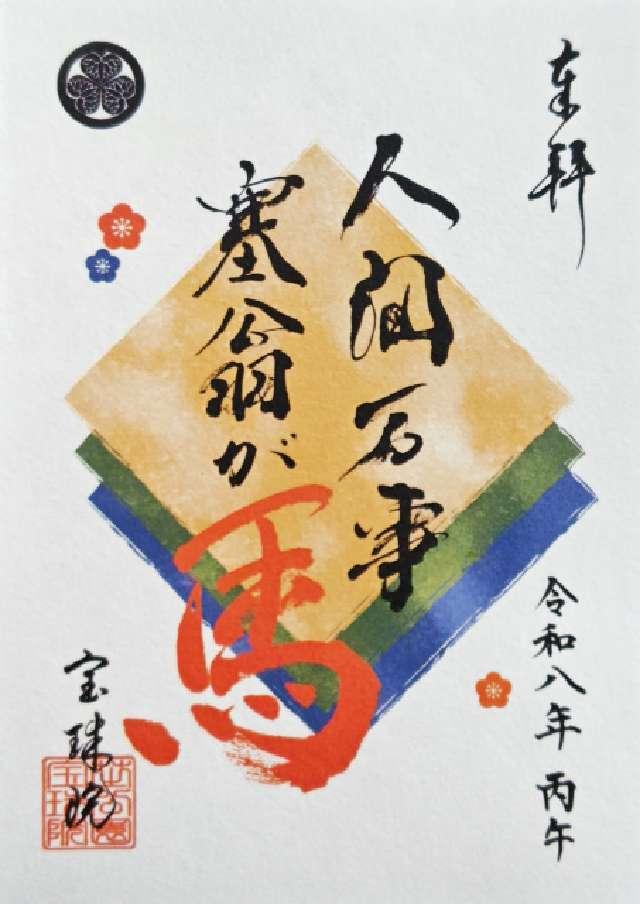 奉拝
人間万事
塞翁が
馬
令和八年 丙午
宝珠院